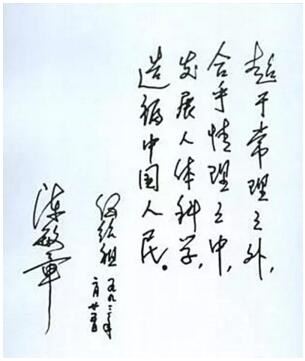 超乎常理之外，
合乎情理之中，
发展人体科学，
造福中国人民。
何绍祖
一九九三年
二月廿五
陈敏章